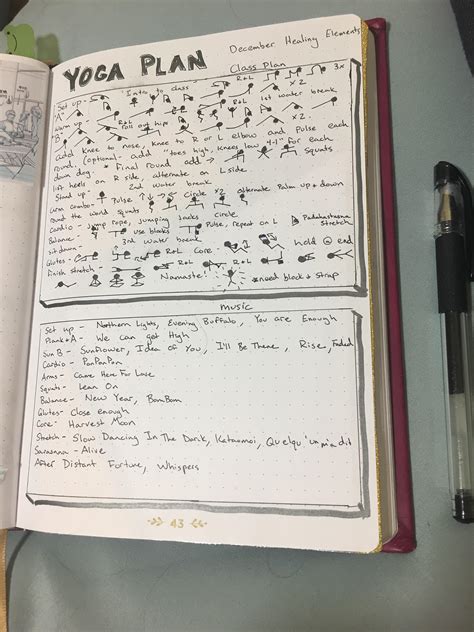 YOGA PLAN
December Healing Elements
Class Plan
Set up - Intro to class R+L 3x
"A" x2
warm up - R+L 1st water break
"B" Roll out hips x2.
add knee to nose, knee to R or L elbow and Pulse each
round. (optional - add "toes high, knees low 4-1" for each
down dog. * Final round add → Squats
lift heels on R side, alternate on L side.
Stand up 2nd water break
arm combo - Pulse Circle x2 alternate Palm up + down
round the world Squats circle
Cardio - Jump rope, jumping Jacks
Balance - use blocks Pulse, repeat on L Padahastasana Stretch
sit down - 3rd water break
Glutes - R+L Core - hold @ end
finish stretch - R+L R+L
Namaste! *need block + strap
music
Set up - Northern Lights, Evening Buffalo, You are Enough
Plank + A - We can get High
Sun B - Sunflower, Idea of You, I'll Be There, Rise, Faded
Cardio - PonPonPon
Arms - Came Here For Love
Squats - Lean On
Balance - New Year, BomBom
Glutes - Close enough
Core - Harvest Moon
Stretch - Slow Dancing In The Dark, Kataomoi, Quelqu'un m'a dit
Savasana - Alive
After Distant Fortune, Whispers
43